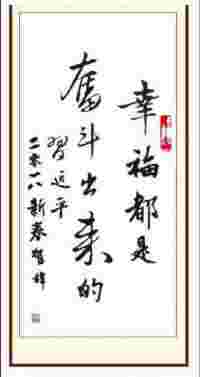 幸福都是
奋斗出来的
習近平
二零一八新春